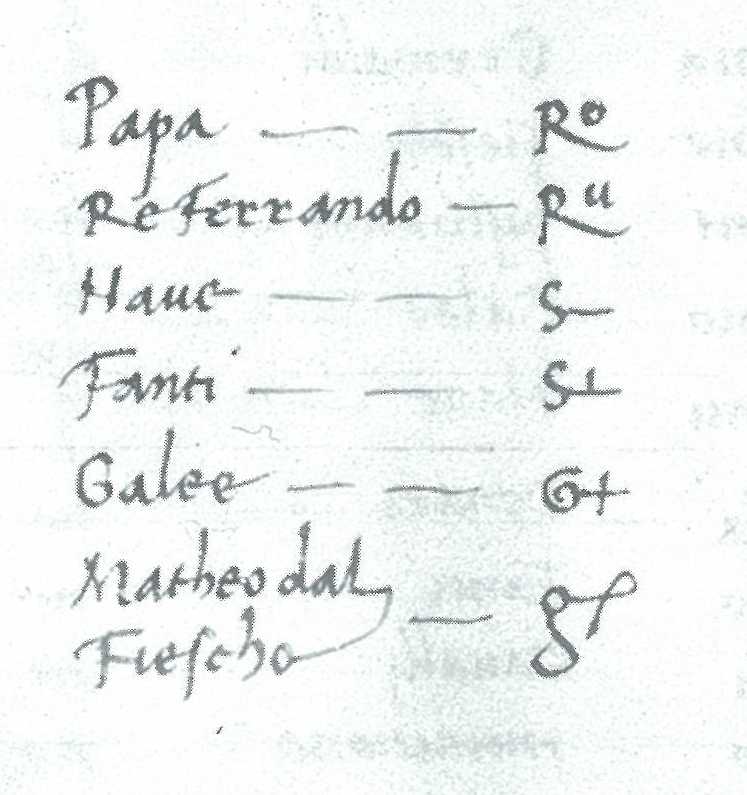 Papa — — Ro
Re Ferrando — Ru
Naue — — S
Fanti — — S
Galee — — G
Matheo dal
Fiescho —